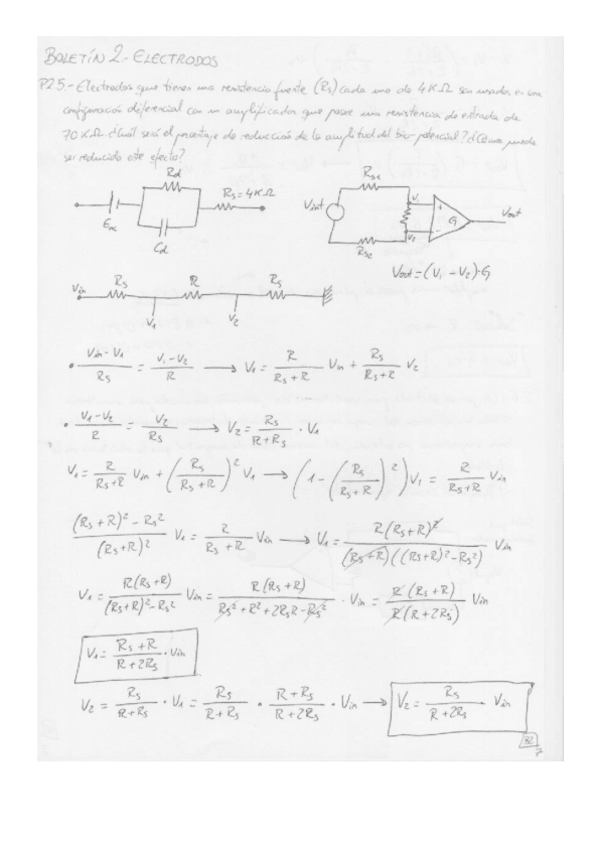 BOLETÍN 2.- ELECTRODOS
P25.- Electrodos que tienen una resistencia fuente (Rs) cada uno de 4KΩ son usados en una
configuración diferencial con un amplificador que posee una resistencia de entrada de
70KΩ ¿Cuál será el porcentaje de reducción de la amplitud del bio-potencial? ¿Cómo puede
ser reducido este efecto?
Rd
Rs=4KΩ
Cd
Rs1
Vint
V1
+
G
Vout
V2
-
Rs2
Vout=(V1-V2)·G
Vin Rs R Rs
V1 V2
• (Vin-V1)/Rs = (V1-V2)/R → V1 = R/(Rs+R) Vin + Rs/(Rs+R) V2
• (V1-V2)/R = V2/Rs → V2 = Rs/(R+Rs) · V1
V1 = R/(Rs+R) Vin + (Rs/(Rs+R))² V1 → (1-(Rs/(Rs+R))²)V1 = R/(Rs+R) Vin
((Rs+R)²-Rs²)/(Rs+R)² V1 = R/(Rs+R) Vin → V1 = R(Rs+R)²/((Rs+R)((Rs+R)²-Rs²)) Vin
V1 = R(Rs+R)/((Rs+R)²-Rs²) Vin = R(Rs+R)/(Rs²+R²+2RsR-Rs²) · Vin = R(Rs+R)/(R(R+2Rs)) Vin
V1 = (Rs+R)/(R+2Rs) · Vin
V2 = Rs/(R+Rs) · V1 = Rs/(R+Rs) · (R+Rs)/(R+2Rs) · Vin → V2 = Rs/(R+2Rs) Vin